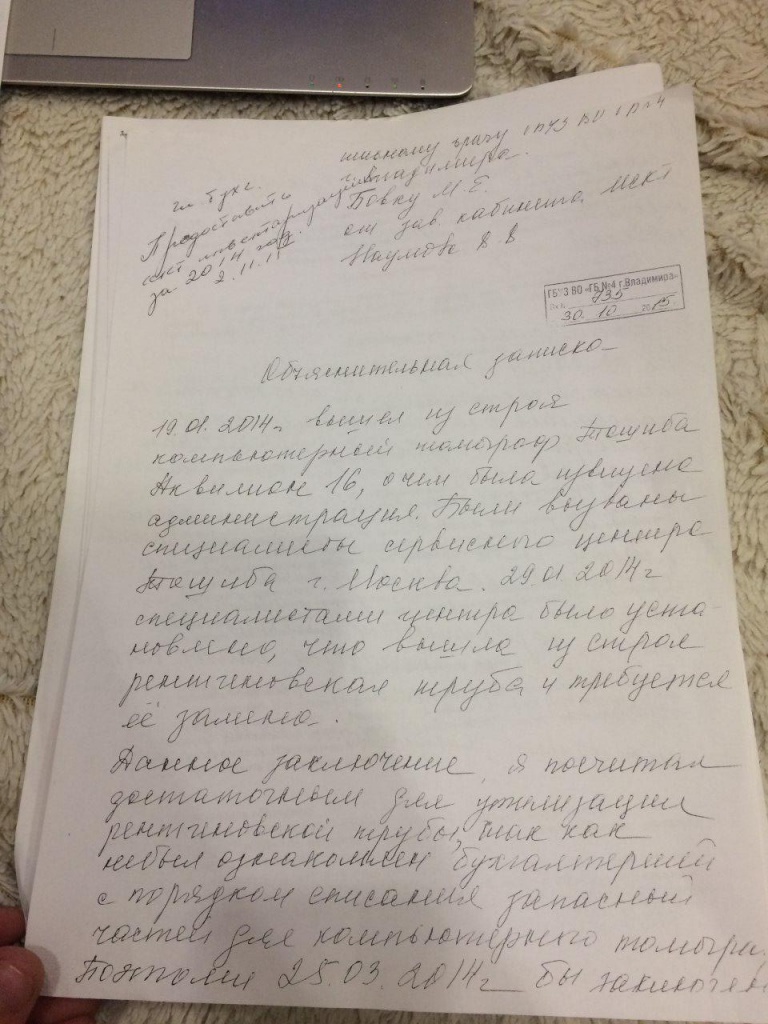 главному врачу ГБУЗ ВО ГБ №4
г. Владимира
Бовку М.Е.
от зав. кабинета МСКТ
Наумова В.В
гл. бух.
Предоставить
акт инвентаризации
за 2014 год.
2.11.15
ГБУЗ ВО «ГБ №4 г. Владимира»
Вх № 735
30. 10 2015
Объяснительная записка
19.01.2014г вышел из строя
компьютерный томограф Тошиба
Аквилион 16, о чем была извещена
администрация. Были вызваны
специалисты сервисного центра
Тошиба г. Москва. 29.01 2014г
специалистами центра было уста-
новлено, что вышла из строя
рентгеновская труба и требуется
её замена.
Данное заключение, я посчитал
достаточным для утилизации
рентгеновской трубы, так как
небыл ознакомлен бухгалтерией
с порядком списания запасный
частей для компьютерного томогра
Поэтому 25.03. 2014г бы заключен